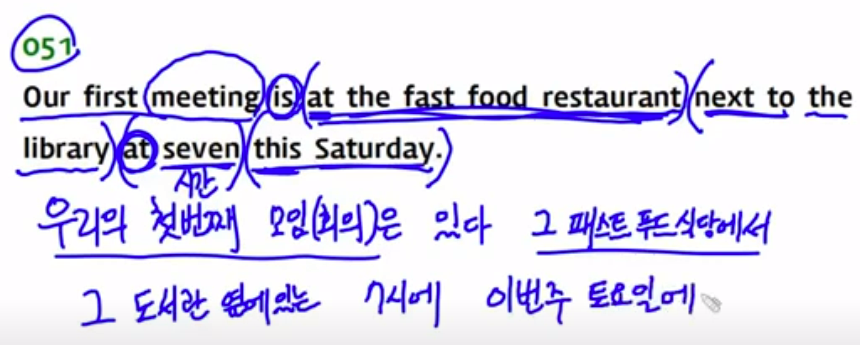 051
Our first meeting is at the fast food restaurant next to the
library at seven this Saturday.
시간
우리의 첫번째 모임(회의)은 있다 그 패스트푸드식당에서
그 도서관 옆에있는 7시에 이번주 토요일에